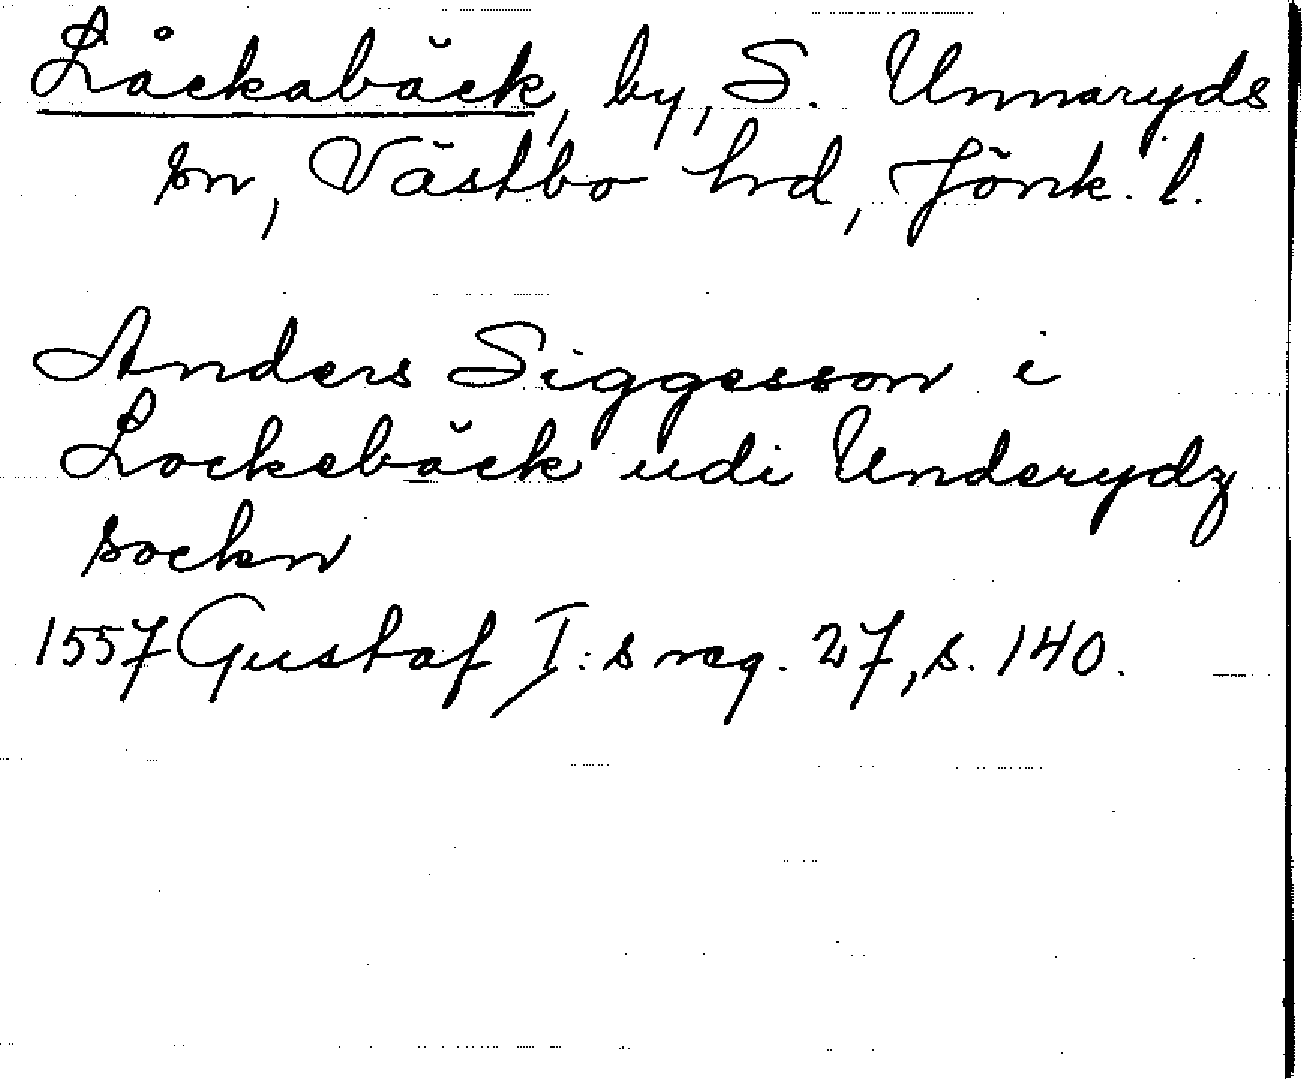 Låckabäck, by, S. Unnaryds
sn, Västbo hrd, Jönk. l.
Anders Siggesson i
Lockebäck udi Underydz
sockn
1557 Gustaf I:s reg. 27, s. 140.